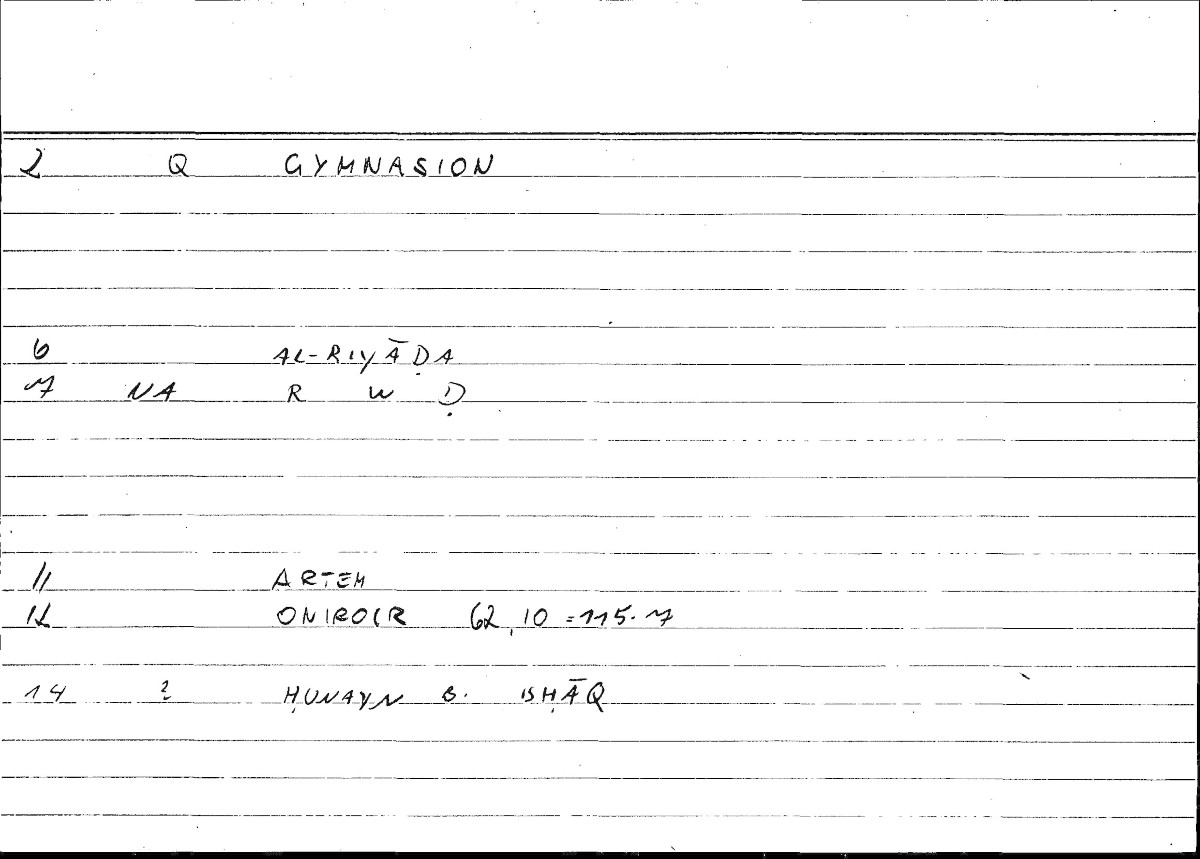 2 Q GYMNASION
6 AL-RIYĀḌA
7 NA R W Ḍ
11 ARTEM
12 ONIROCR 62,10 = 115.7
14 ? ḤUNAYN B. ISḤĀQ